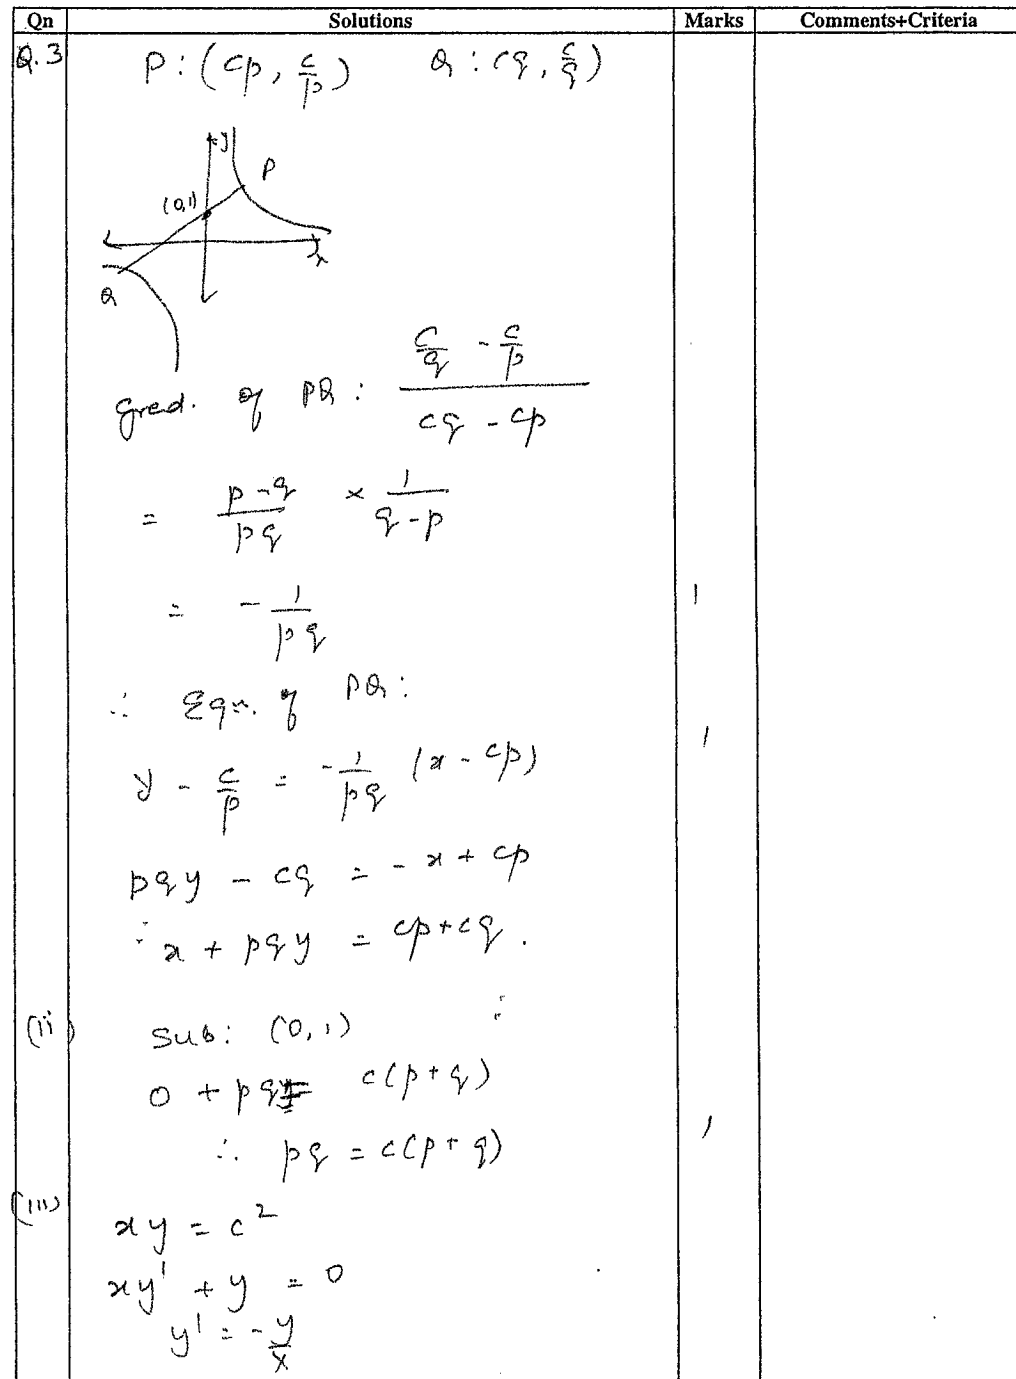 Qn Solutions Marks Comments+Criteria
Q.3 P: (cp, c/p) Q: (cq, c/q)
y
P
(0,1)
x
Q
grad. of PQ: (c/q - c/p)/(cq - cp)
= (p-q)/(pq) × 1/(q-p)
= - 1/(pq) 1
∴ Eqn. of PQ:
y - c/p = -1/(pq) (x - cp) 1
pqy - cq = -x + cp
∴ x + pqy = cp+cq.
(ii) Sub: (0,1)
0 + pq = c(p+q)
∴ pq = c(p+q) 1
(iii)
xy = c²
xy' + y = 0
y' = -y/x